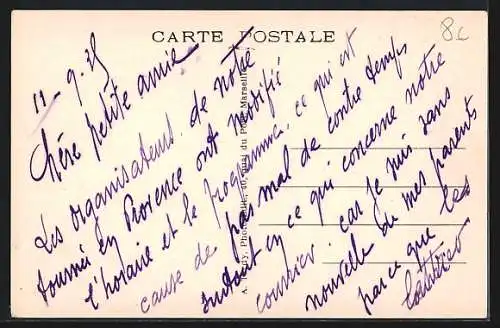 CARTE POSTALE
8c
11-9.25
Chère petite amie
Les organisateurs de notre
tournée en Provence ont modifié
l'horaire et le programme, ce qui est
cause de pas mal de contre temps
surtout en ce qui concerne notre
courrier. car je suis sans
nouvelle de mes parents
parce que les
du Port Marseille